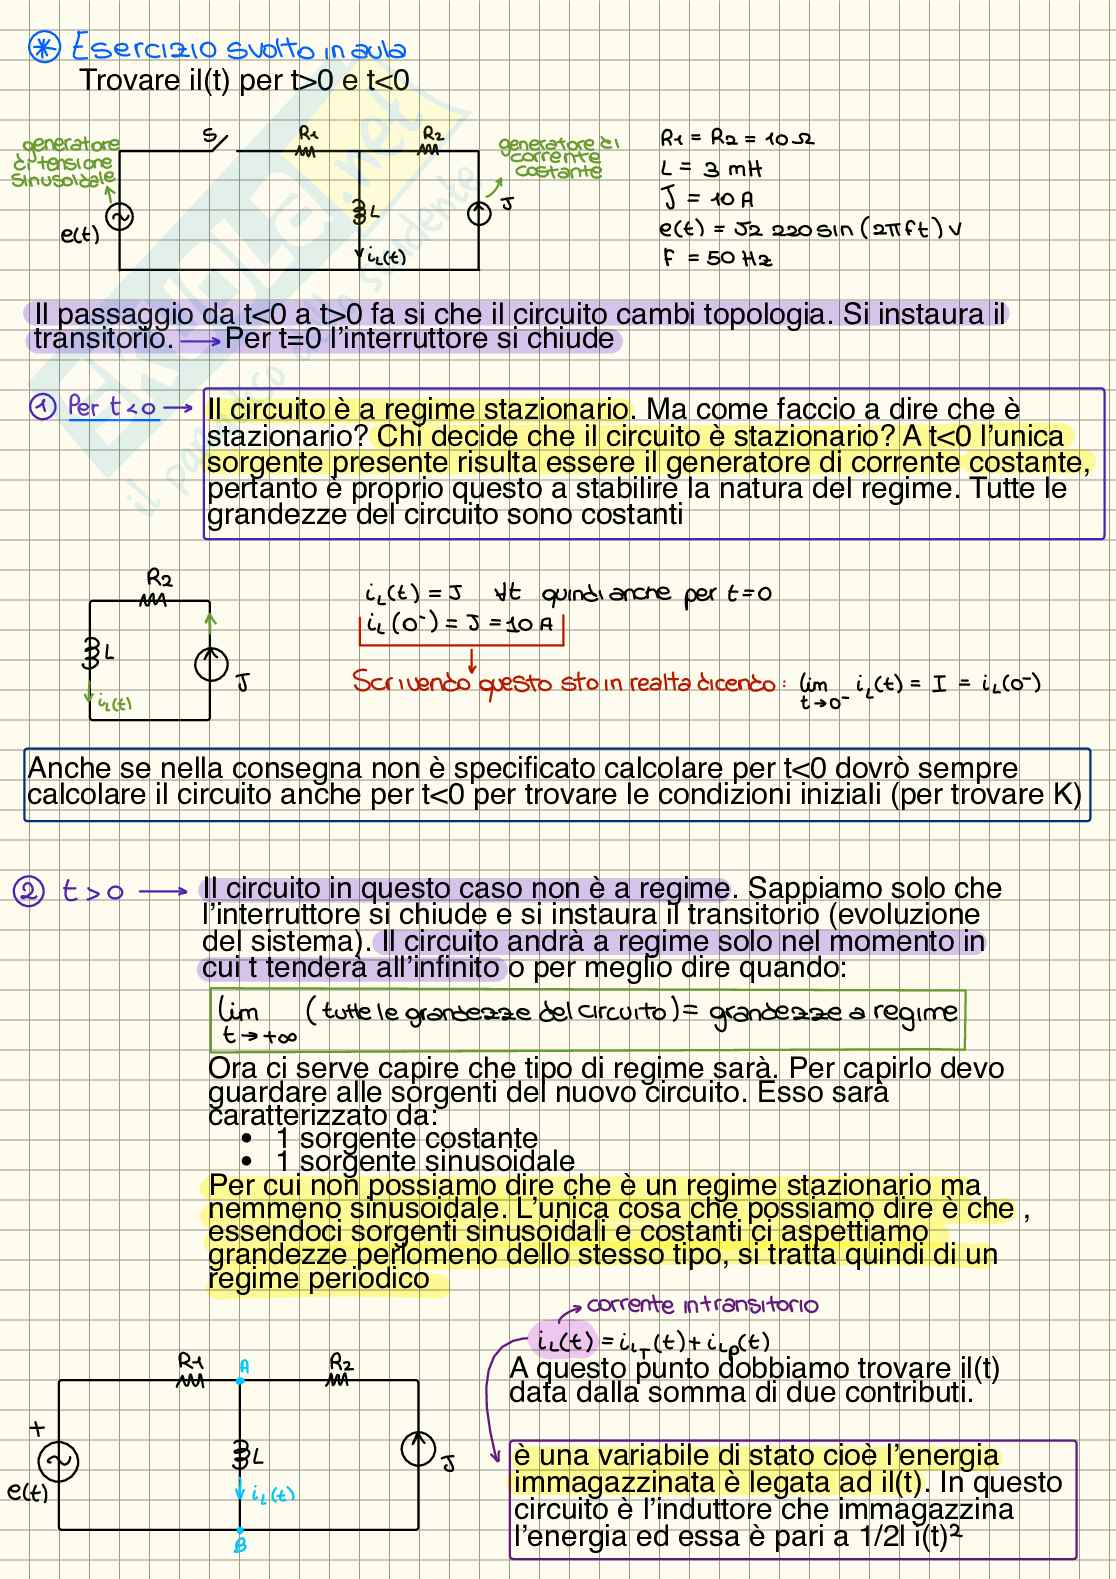 * Esercizio svolto in aula
Trovare il(t) per t>0 e t<0
generatore
di tensione
sinusoidale
S
R1
R2
generatore di
corrente
costante
e(t)
L
iL(t)
J
R1 = R2 = 10 Ω
L = 3 mH
J = 10 A
e(t) = √2 220 sin (2πft) V
F = 50 Hz
Il passaggio da t<0 a t>0 fa si che il circuito cambi topologia. Si instaura il
transitorio. → Per t=0 l'interruttore si chiude
① Per t<0 →
Il circuito è a regime stazionario. Ma come faccio a dire che è
stazionario? Chi decide che il circuito è stazionario? A t<0 l'unica
sorgente presente risulta essere il generatore di corrente costante,
pertanto è proprio questo a stabilire la natura del regime. Tutte le
grandezze del circuito sono costanti
R2
L
iL(t)
J
iL(t) = J ∀t quindi anche per t=0
iL(0⁻) = J = 10 A
Scrivendo questo sto in realta dicendo: lim t→0⁻ iL(t) = I = iL(0⁻)
Anche se nella consegna non è specificato calcolare per t<0 dovrò sempre
calcolare il circuito anche per t<0 per trovare le condizioni iniziali (per trovare K)
② t>0 →
Il circuito in questo caso non è a regime. Sappiamo solo che
l'interruttore si chiude e si instaura il transitorio (evoluzione
del sistema). Il circuito andrà a regime solo nel momento in
cui t tenderà all'infinito o per meglio dire quando:
lim t→+∞ (tutte le grandezze del circuito) = grandezze a regime
Ora ci serve capire che tipo di regime sarà. Per capirlo devo
guardare alle sorgenti del nuovo circuito. Esso sarà
caratterizzato da:
• 1 sorgente costante
• 1 sorgente sinusoidale
Per cui non possiamo dire che è un regime stazionario ma
nemmeno sinusoidale. L'unica cosa che possiamo dire è che ,
essendoci sorgenti sinusoidali e costanti ci aspettiamo
grandezze perlomeno dello stesso tipo, si tratta quindi di un
regime periodico
corrente in transitorio
iL(t) = iLT(t) + iLp(t)
A questo punto dobbiamo trovare il(t)
data dalla somma di due contributi.
R1
A
R2
+
e(t)
L
iL(t)
J
B
è una variabile di stato cioè l'energia
immagazzinata è legata ad il(t). In questo
circuito è l'induttore che immagazzina
l'energia ed essa è pari a 1/2l i(t)²